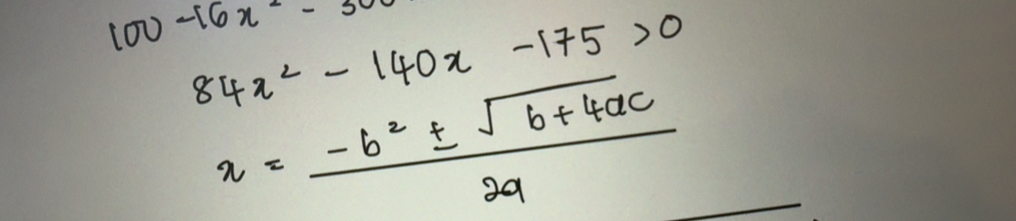 100 - 16x² -
84x² - 140x - 175 > 0
x = (-b² ± √(b + 4ac)) / 2a